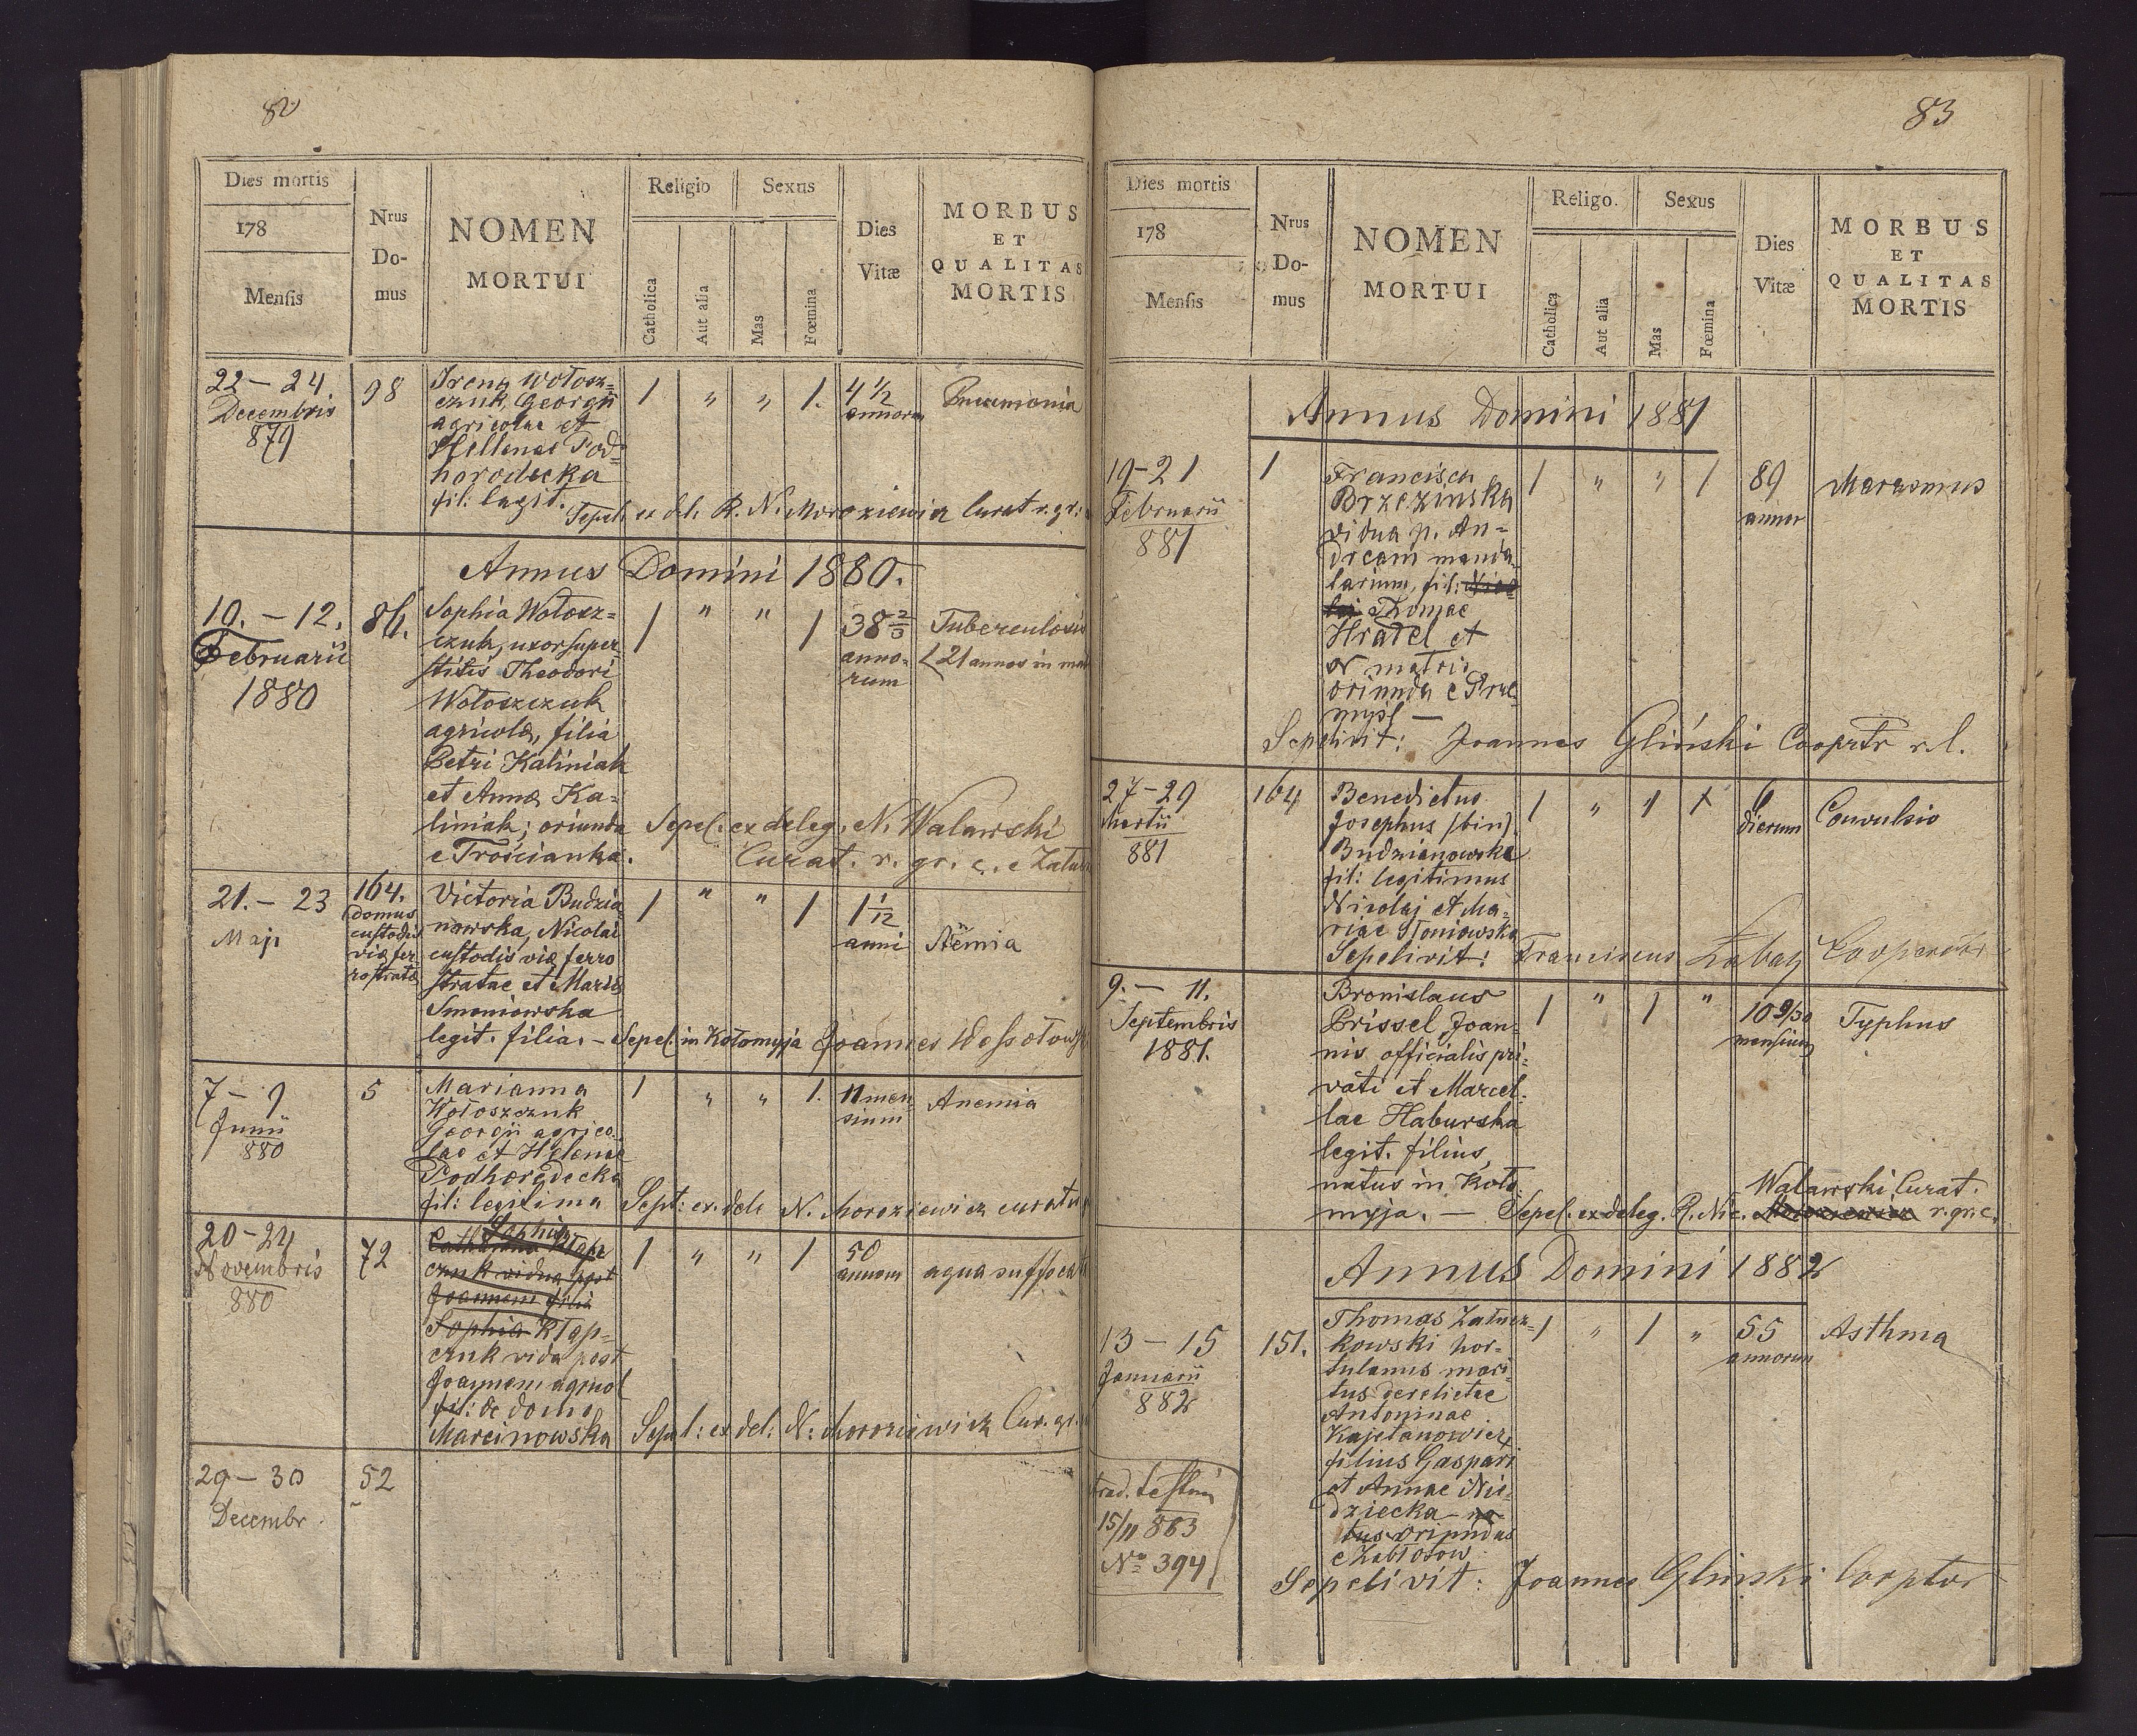 82
Dies mortis
178
Mensis
Nrus
Do-
mus
NOMEN
MORTUI
Religio
Catholica
Aut alia
Sexus
Mas
Fœmina
Dies
Vitæ
MORBUS
ET
QUALITAS
MORTIS
22 — 24
Decembris
879
98
Irena Wołosz=
czuk, Georgii
agricolae et
Hellenae Pod=
horodecka
fil: legit.
1 " " 1.
4 1/2
annorum
Pneumonia
Sepel. ex del. R. N. Moroziewicz Curat r. gr:
Annus Domini 1880.
10. — 12.
Februarii
1880
86.
Sophia Wołosz=
czuk, uxor super-
stitis Theodori
Wołoszczuk
agricolæ, filia
Petri Kaliniak
et Annæ Ka-
liniak; oriunda
e Trościanka.
1 " " 1
38 2/3
anno-
rum
Tuberculosis
21 annos in ma
Sepel. ex deleg. N. Walawski
Curat. r. gr. c. e Zału
21. — 23
Maji
164.
(domus
custodis
viæ fer-
rostratæ
Victoria Budzia-
nowska, Nicolai
custodis viæ ferro
stratae et Mariæ
Smoniowska
legit. filia. — Sepel. in Kołomyja Joannes
1 " " 1
1 1/12
anni
Anemia
7 — 9
Junii
880
5
Marianna
Wołoszczuk
Georgii agrico-
lae et Helenae
Podhorodecka
fil: legitima
1 " " 1.
11 men-
sium
Anemia
Sept: ex. del. N. Moroziewicz curatus
20 — 24
Novembris
880
72
Sophia
Catharina Kłap
czuk vidua post
Joannem filia
Sophia Kłap-
czuk vida post
Joannem agricol
fil: de domo
Marcinowska
1 " " 1
50
annorum
aqua suffocata
Sepel: ex del: N: Moroziewicz Cur. gr.
29 — 30
Decembr.
52
83
Dies mortis
178
Mensis
Nrus
Do-
mus
NOMEN
MORTUI
Religo.
Catholica
Aut alia
Sexus
Mas
Fœmina
Dies
Vitæ
MORBUS
ET
QUALITAS
MORTIS
Annus Domini 1881
19 — 21
Februarii
881
1
Francisca
Brzezinska
vidua p. An=
dream manda
tarium, fil:
Thomae
Hradel et
matris
oriunda e Prze
mysl —
1 " " 1
89
annor
Marasmus
Sepelivit: Joannes Gliński Cooprtr r. l.
27 — 29
Martii
881
164
Benedictus
Josephus (bin)
Budzianowska
fil: legitimus
Nicolaj et Ma-
riae Słoniowska
1 " 1
6
dierum
Convulsio
Sepelivit: Franciscus Łabaj Cooperator
9. — 11.
Septembris
1881.
Bronislaus
Prissel, Joan-
nis officialis pri-
vati et Marcel-
lae Haburska
legit. filius,
natus in Koło
myja. —
1 " 1 "
10 9/30
mensium
Typhus
Sepel. ex deleg. R. Nic. Walawski, Curat.
r. gr. c.
Annus Domini 1882
13 — 15
Januarii
882
151.
Thomas Załucz=
kowski hor-
tulanus mari-
tus derelictae
Antoninae
Kajetanowicz
filius Gaspari
et Annae Nie-
dziecka — na
tus oriundus
e Zabłotow
1 " 1 "
55
annorum
Asthma
Sepelivit: Joannes Glinski Cooptor
trad. testim
15/11 883
No 394